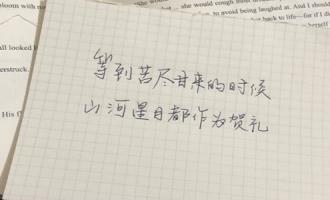 bloom with
she would cough
to avoid being laughed at. And I should
back to life—for if I di
herself
all looked l
erstruck.
His f
等到苦尽甘来的时候
山河星月都作为贺礼